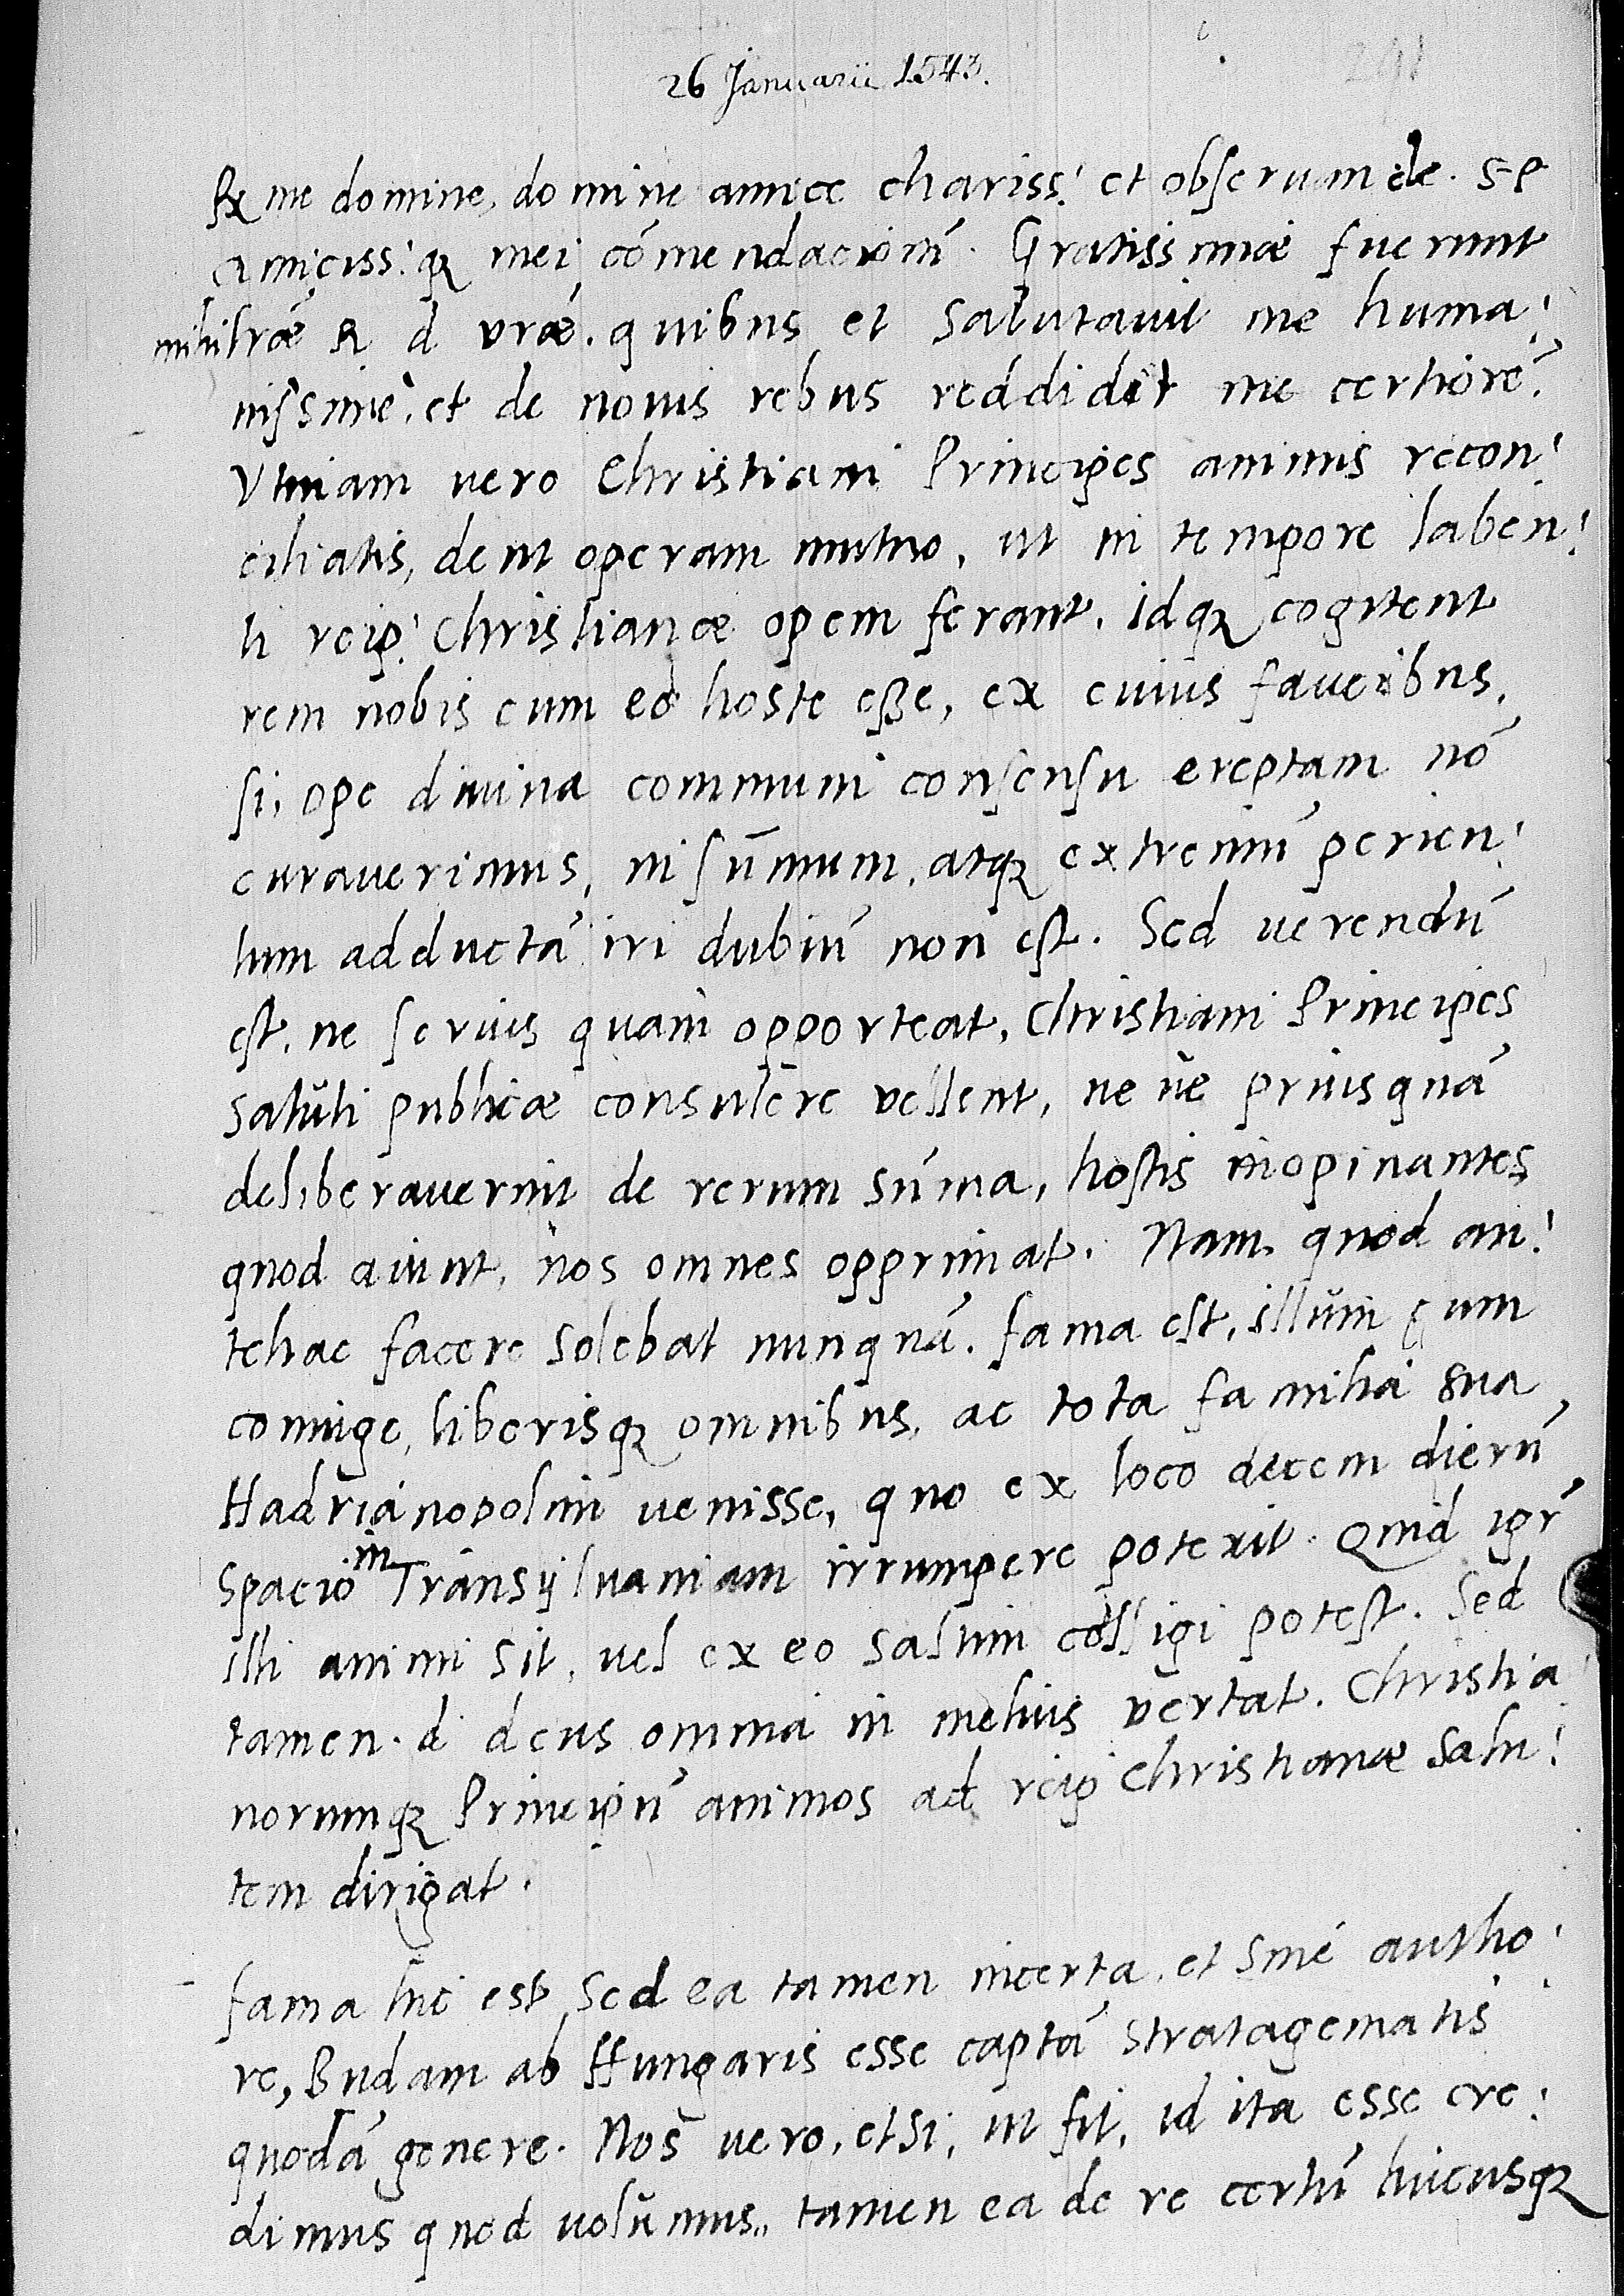 26 Januarii 1543.
Rme domine, domine amice chariss: et obseruande. S P
amiciss:q; mei cōmendacionē. Gratissimæ fuerunt
mihi lræ R d vræ. quibus et salutauit me huma:
nissime, et de nouis rebus reddidit me certiorē.
Vtinam vero Christiani Principes animis recon:
ciliatis, dent operam mutuo, ut in tempore laben:
ti reip: Christianæ opem ferant. idq; cogitent
rem nobis cum eo hoste eße, ex cuius faucibus,
si, ope diuina communi consensu ereptam nō
curauerimus, in sūmum, atq; extremū pericu:
lum adductā iri dubiū non est. Sed uerendū
est, ne serius quam opporteat, Christiani Principes
saluti publicæ consulere vellent, ne ue priusquā
deliberauerint de rerum sūma, hostis inopinantes
quod aiunt, nos omnes opprimat. Nam quod an:
tehac facere solebat nunquā. fama est, illum cum
coniuge, liberisq; omnibus, ac tota familia sua
Hadrianopolim uenisse, quo ex loco decem dierū
spacio in Transyluaniam irrumpere poterit. Quid igr
illi animi sit, uel ex eo saltim colligi potest. Sed
tamen. d deus omnia in melius vertat. Christia
norumq; Principū animos ad reip Christianæ salu:
tem dirigat.
fama hic est sed ea tamen incerta, et sine autho:
re, Budam ab Hungaris esse captā stratagematis
quodā genere. Nos vero, etsi, ut fit, id ita esse cre:
dimus quod uolumus, tamen ea de re certi hucusq;